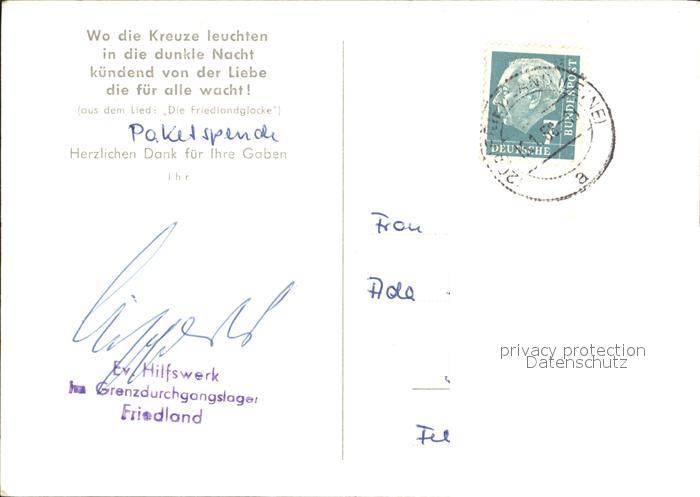 Wo die Kreuze leuchten
in die dunkle Nacht
kündend von der Liebe
die für alle wacht!
(aus dem Lied: „Die Friedlandglocke")
Paketspende
Herzlichen Dank für Ihre Gaben
Ihr
Ev. Hilfswerk
im Grenzdurchgangslager
Friedland
DEUTSCHE
BUNDESPOST
7
Frau
Ada
privacy protection
Datenschutz